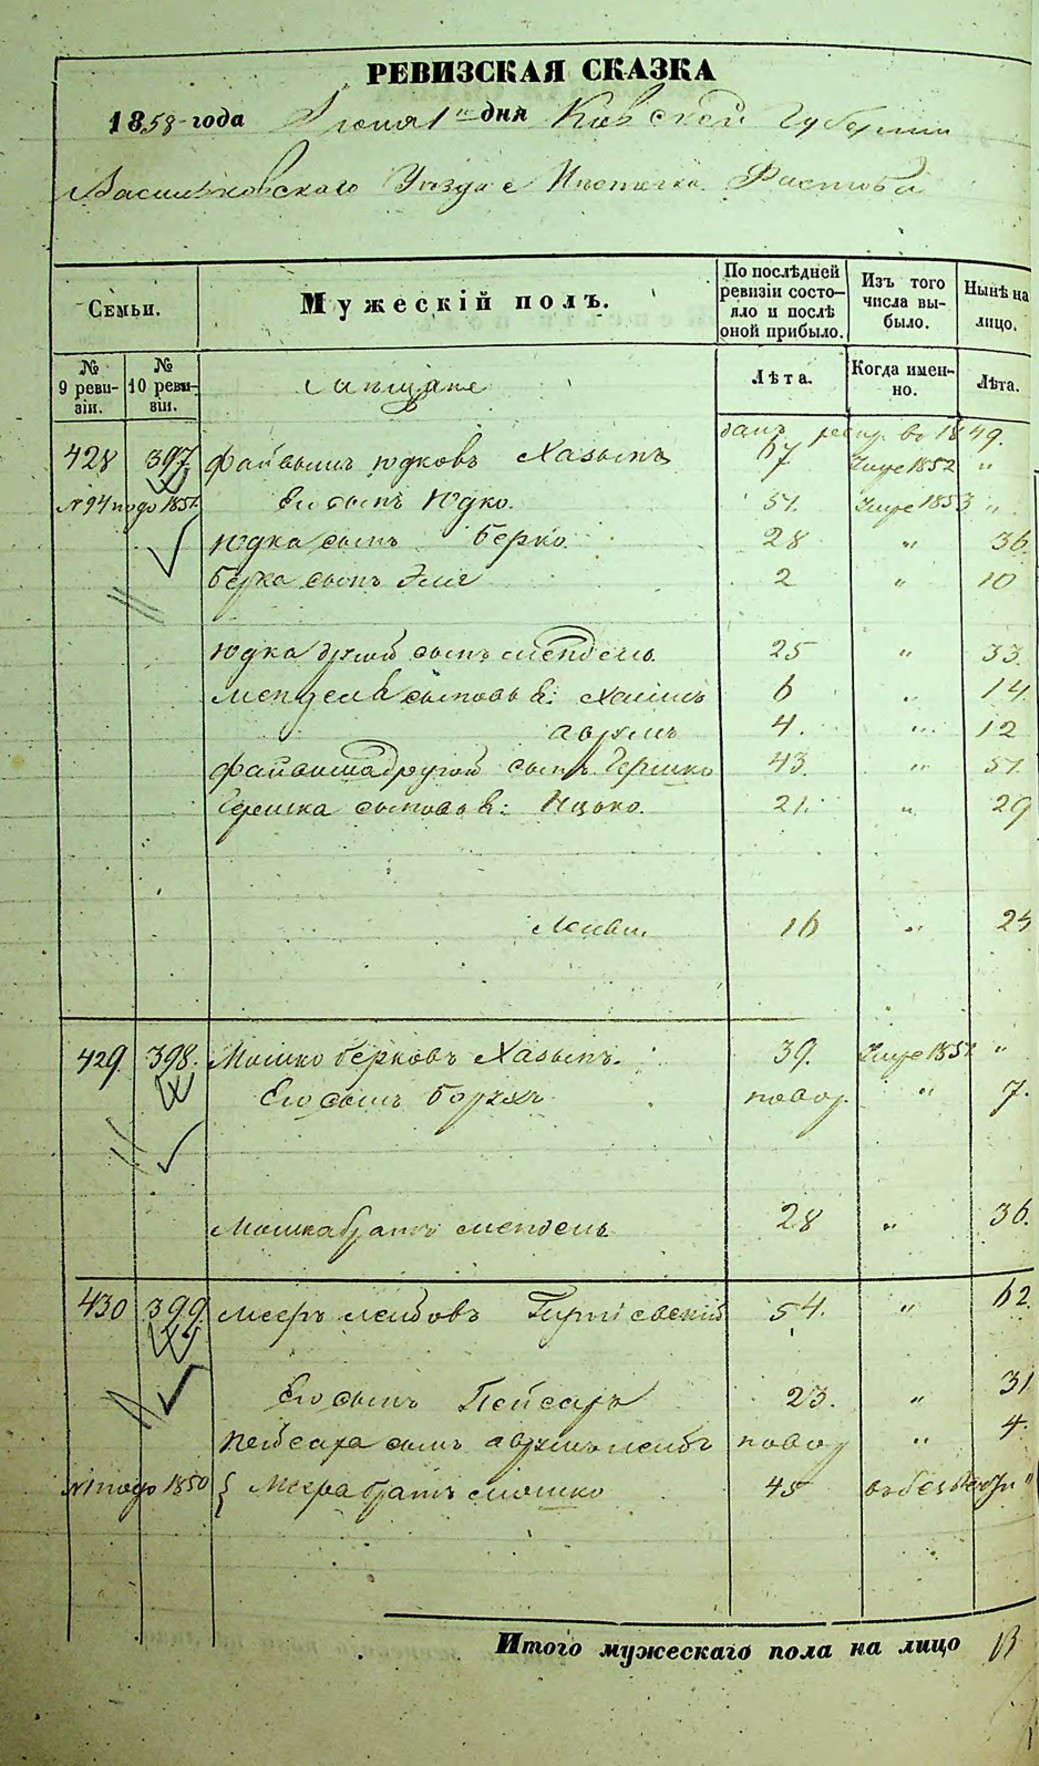 РЕВИЗСКАЯ СКАЗКА
1858 года Июня 1го дня Киевской Губернии
Васильковского Уезда Местечка Фастова
Семьи. Мужескiй полъ. По послѣдней ревизiи состояло и послѣ оной прибыло. Изъ того числа выбыло. Нынѣ на лицо.
№ 9 ревизiи. № 10 ревизiи. мещане Лѣта. Когда именно. Лѣта.
1849.
428 397 Файвишъ Юдковъ Хазынъ 67 Умре 1852 "
1851 Его сынъ Юдко. 51. Умре 1853 "
Юдка сынъ Берко 28 " 36.
Берка сынъ Эле 2 " 10
Юдка другой сынъ Мендель 25 " 33.
Менделя сыновья: Хаимъ 6 " 14.
Аврумъ 4. " 12
Файвиша другой сынъ Гершко 43. " 51.
Гершка сыновья: Ицько. 21. " 29
Лейви. 16 " 24
429 398. Мошко Берковъ Хазынъ. 39. Умре 1851 "
Его сынъ Борухъ новор. " 7.
Мошка братъ Мендель 28 " 36.
430 399. Мееръ Лейбовъ 54. " 62.
Его сынъ Пейсахъ 23. " 31
Пейсаха сынъ Аврумъ Лейбъ новор " 4.
1850 { Меера братъ Мошко 45 "
Итого мужескаго пола на лицо 13